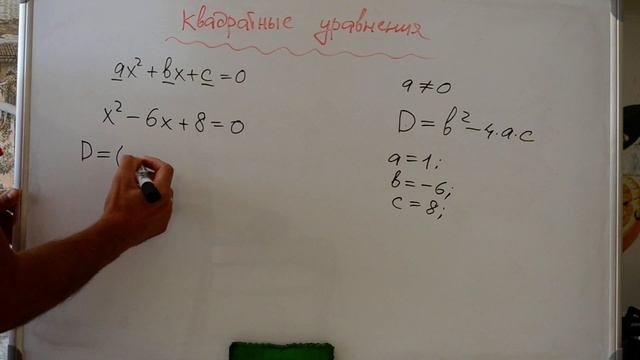 Квадратные уравнения
ax² + bx + c = 0
x² - 6x + 8 = 0
D = (
a ≠ 0
D = b² - 4·a·c
a = 1;
b = -6;
c = 8;